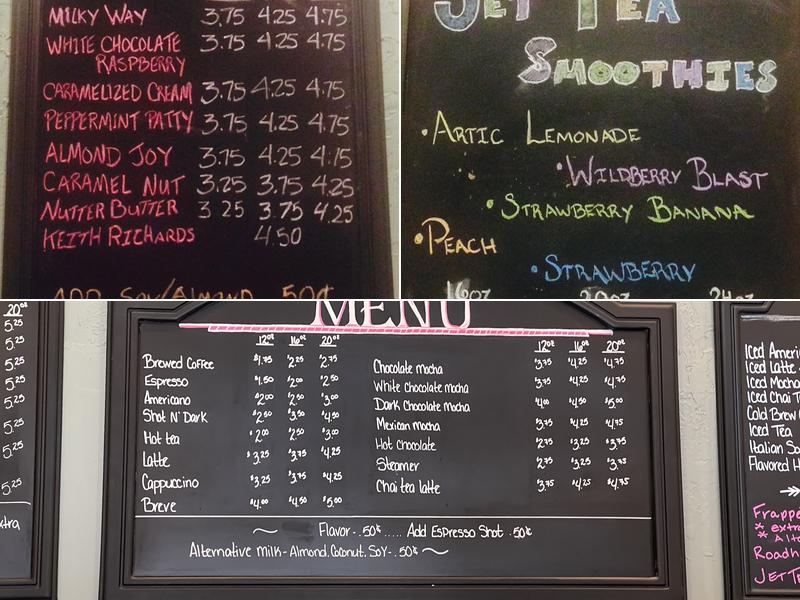 MILKY WAY 3.75 4.25 4.75
WHITE CHOCOLATE 3.75 4.25 4.75
RASPBERRY
CARAMELIZED CREAM 3.75 4.25 4.75
PEPPERMINT PATTY 3.75 4.25 4.75
ALMOND JOY 3.75 4.25 4.75
CARAMEL NUT 3.25 3.75 4.25
NUTTER BUTTER 3.25 3.75 4.25
KEITH RICHARDS 4.50
ADD SOY/ALMOND 50¢
JET TEA
SMOOTHIES
• ARTIC LEMONADE
• WILDBERRY BLAST
• STRAWBERRY BANANA
• PEACH
• STRAWBERRY
16oz 20oz 24oz
20oz
5.25
5.25
5.25
5.25
5.25
5.25
5.25
5.25
MENU
12oz 16oz 20oz
Brewed Coffee $1.75 $2.25 $2.75
Espresso $1.50 $2.00 $2.50
Americano $2.00 $2.50 $3.00
Shot N' Dark $2.50 $3.50 $4.50
Hot tea $2.00 $2.50 $3.00
Latte $3.25 $3.75 $4.25
Cappuccino $3.25 $3.75 $4.25
Breve $4.00 $4.50 $5.00
12oz 16oz 20oz
Chocolate mocha $3.75 $4.25 $4.75
White Chocolate mocha $3.75 $4.25 $4.75
Dark Chocolate mocha $4.00 $4.50 $5.00
Mexican mocha $3.75 $4.25 $4.75
Hot Chocolate $2.75 $3.25 $3.75
Steamer $2.75 $3.25 $3.75
Chai tea latte $3.75 $4.25 $4.75
Flavor-.50¢..... Add Espresso Shot .50¢
Alternative Milk-Almond.Coconut.Soy-.50¢
Iced Ameri
Iced Latte
Iced Mocha
Iced Chai T
Cold Brew
Iced Tea
Italian So
Flavored H
Frappe
* extra
* Alte
Roadh
JET TE